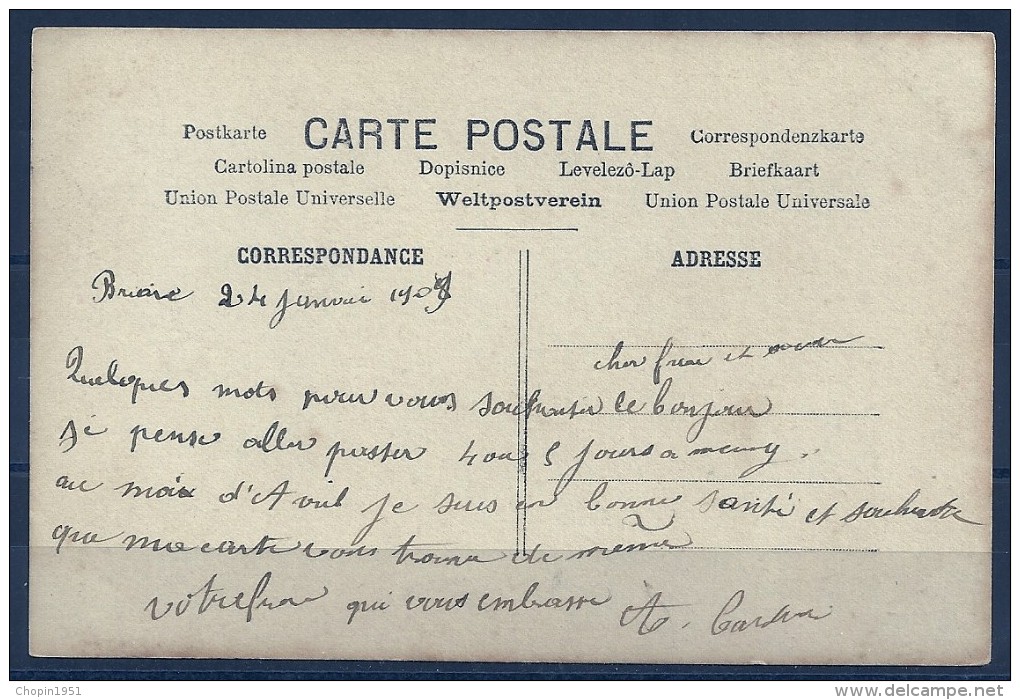 Postkarte CARTE POSTALE Correspondenzkarte
Cartolina postale Dopisnice Levelezô-Lap Briefkaart
Union Postale Universelle Weltpostverein Union Postale Universale
CORRESPONDANCE ADRESSE
Briare 24 Janvier
cher frère et
Quelques mots pour vous souhaiter le bonjour
je pense aller passer 4 ou 5 jours a meung
au mois d'Avril je suis en bonne santé et souhaite
que ma carte vous trouve de même
votre frère qui vous embrasse A.
Chopin1951
www.delcampe.net